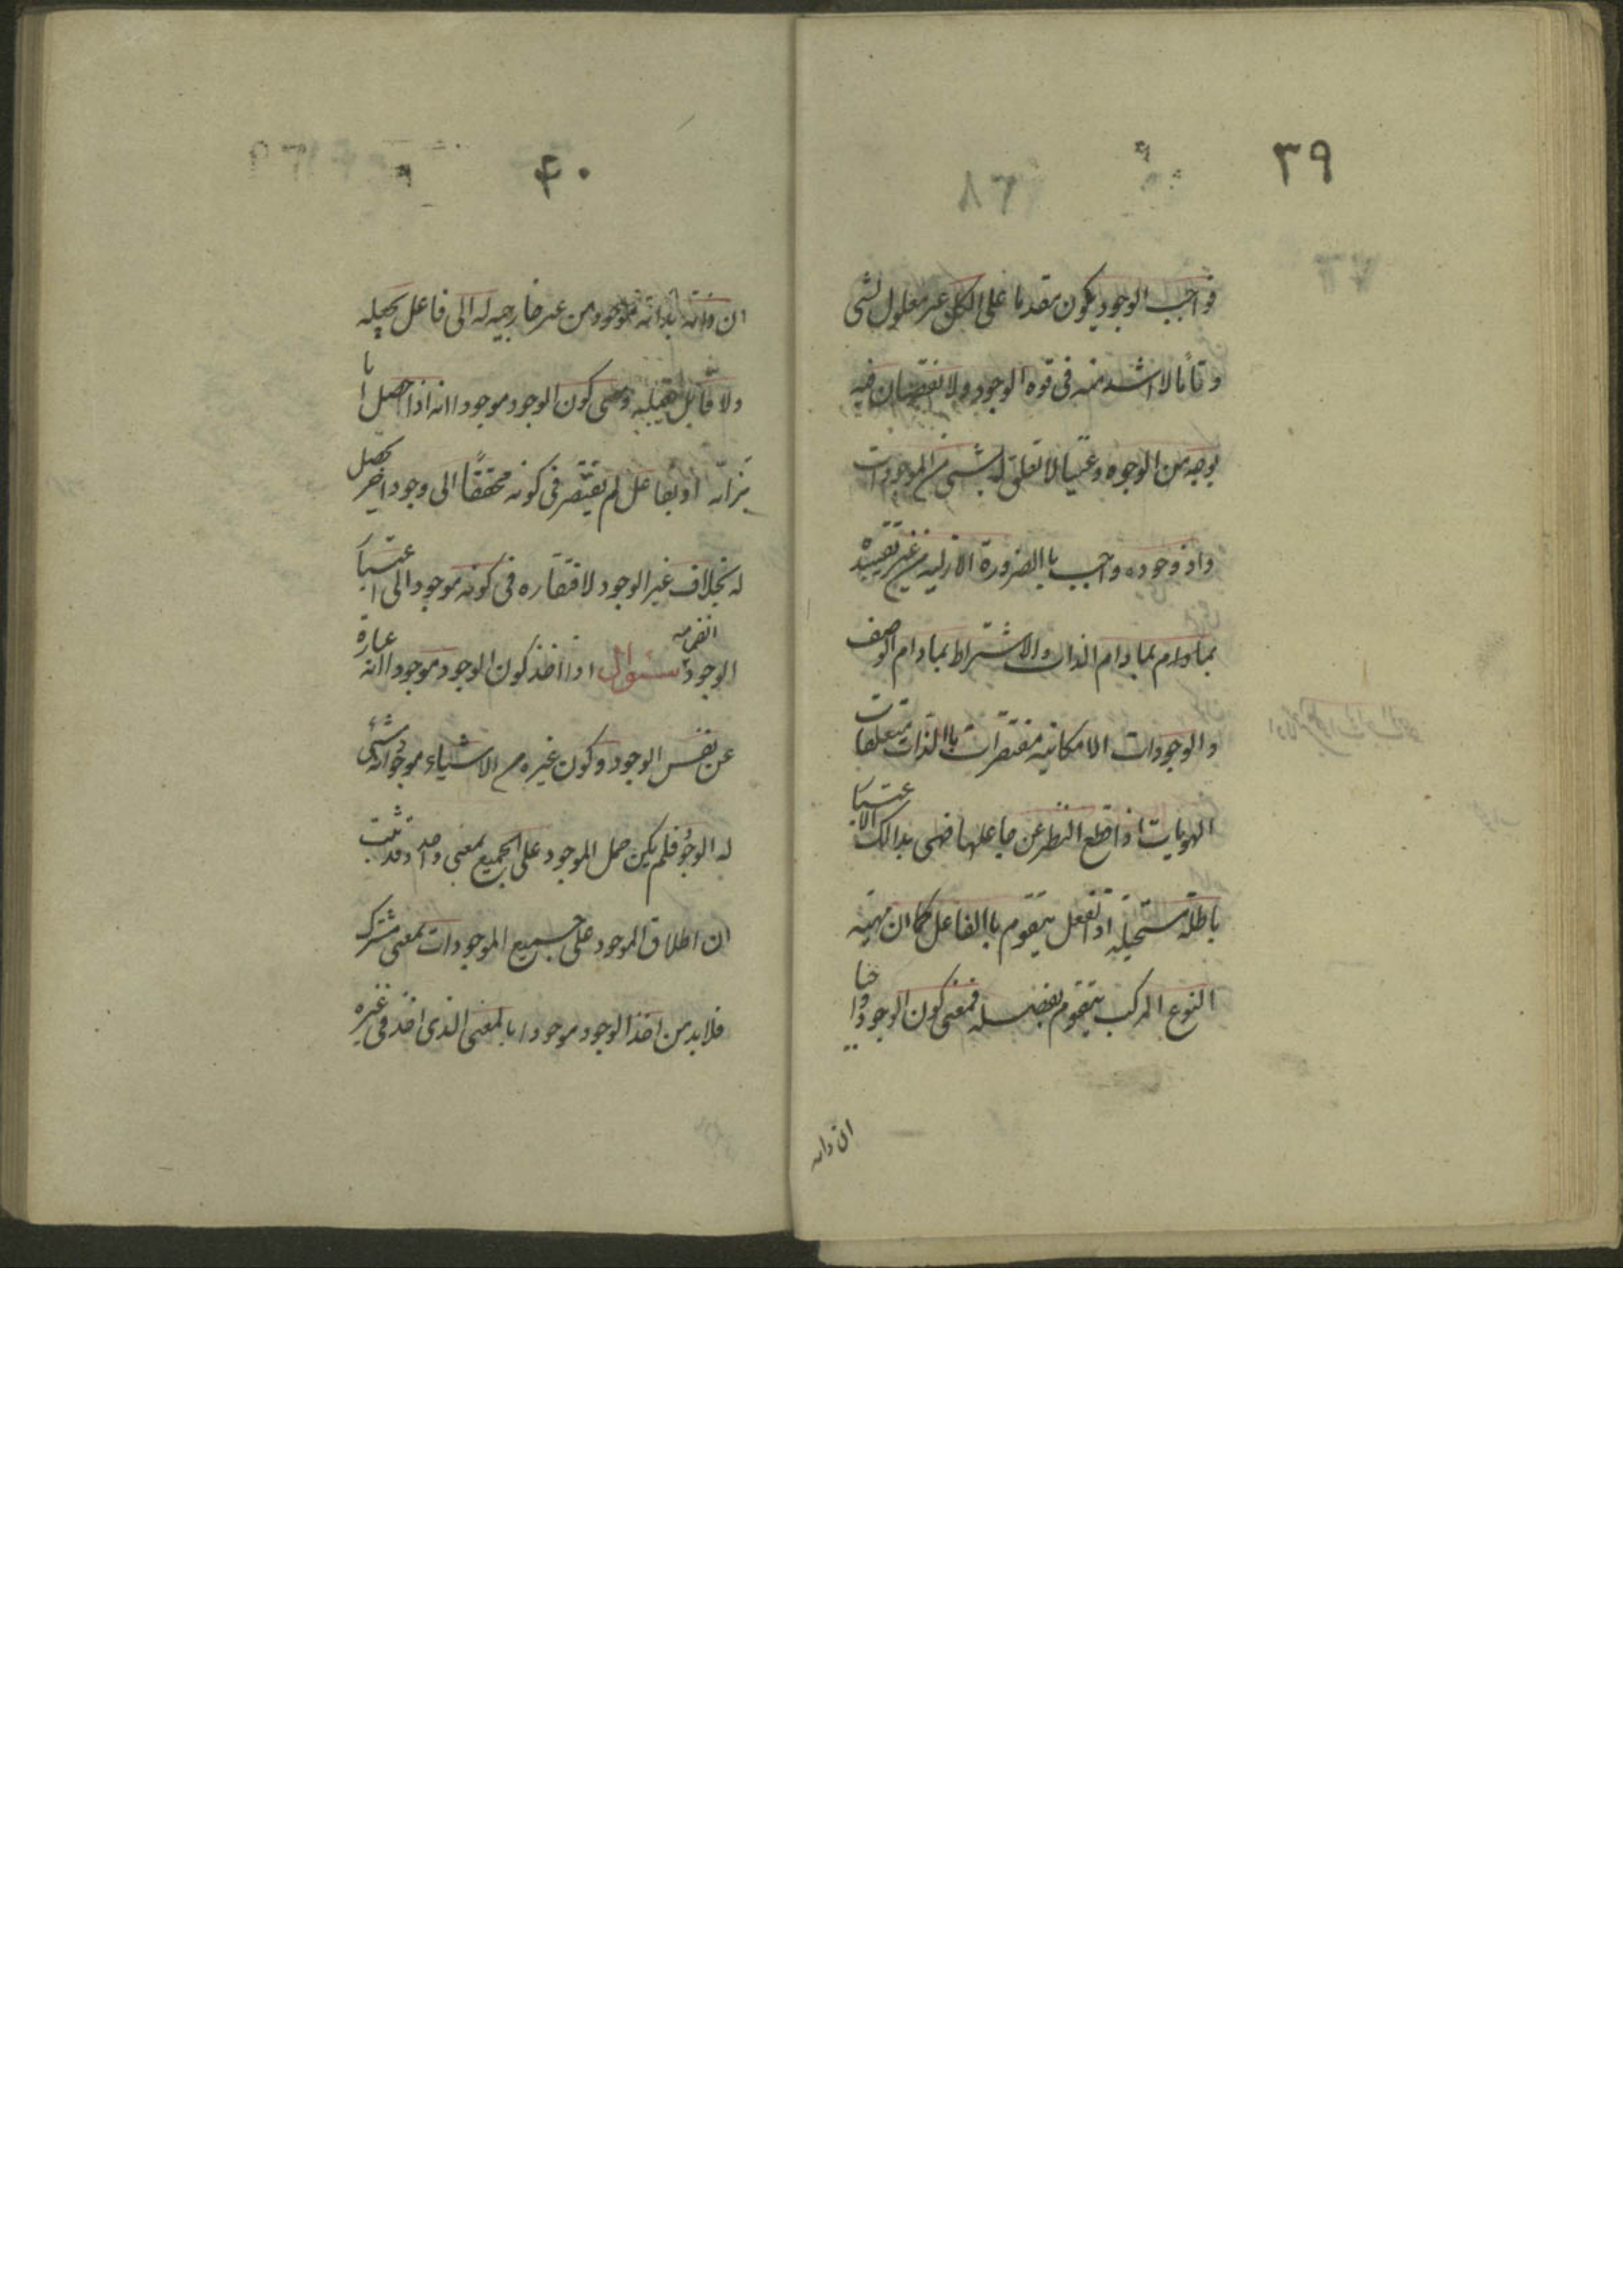 ٣٩
فواجب الوجود يكون مقدما على الكل غير معلول لشى
و تاما لا اشد منه فى قوه الوجود و لا نقصان فيه
بوجه من الوجوه و غنيا لا تعلق له بشئ من الموجودات
واذ وجوده واجب باالضرورة الازليه من غير تقييده
بمادام بمادام الذات والاشتراط بمادام الوصف
والوجودات الامكانيه مفتقرات باالذات متعلقات
الهويات اذا قطع النظر عن جاعلها فهى بذالك الاعتبا
باطلة مستحيله اذ الفعل يتقوم باالفاعل كما ان مهيه
النوع المركب يتقوم بفصله فمعنى كون الوجود واجبا
ان ذاته
٤٠
ان ذاته بذاته موجود من غير خارجيه له الى فاعل يجعله
ولا قابل يقبله ومعنى كون الوجود موجودا انه اذا حصل اما
بذاته او بفاعل لم يفتقر فى كونه محققا الى وجود اخر يحصل
له بخلاف غير الوجود لافتقاره فى كونه موجودا الى اعتبا
الوجود انضمامه سئوال اذا اخذ كون الوجود موجودا انه عبارة
عن نفس الوجود و كون غيره من الاشياء موجودا انه شئ
له الوجود فلم يكن حمل الموجود على الجميع بمعنى واحد وقد ثبت
ان اطلاق الموجود على جميع الموجودات بمعنى مشترك
فلابد من اخذ الوجود موجودا بالمعنى الذى اخذ فى غيره